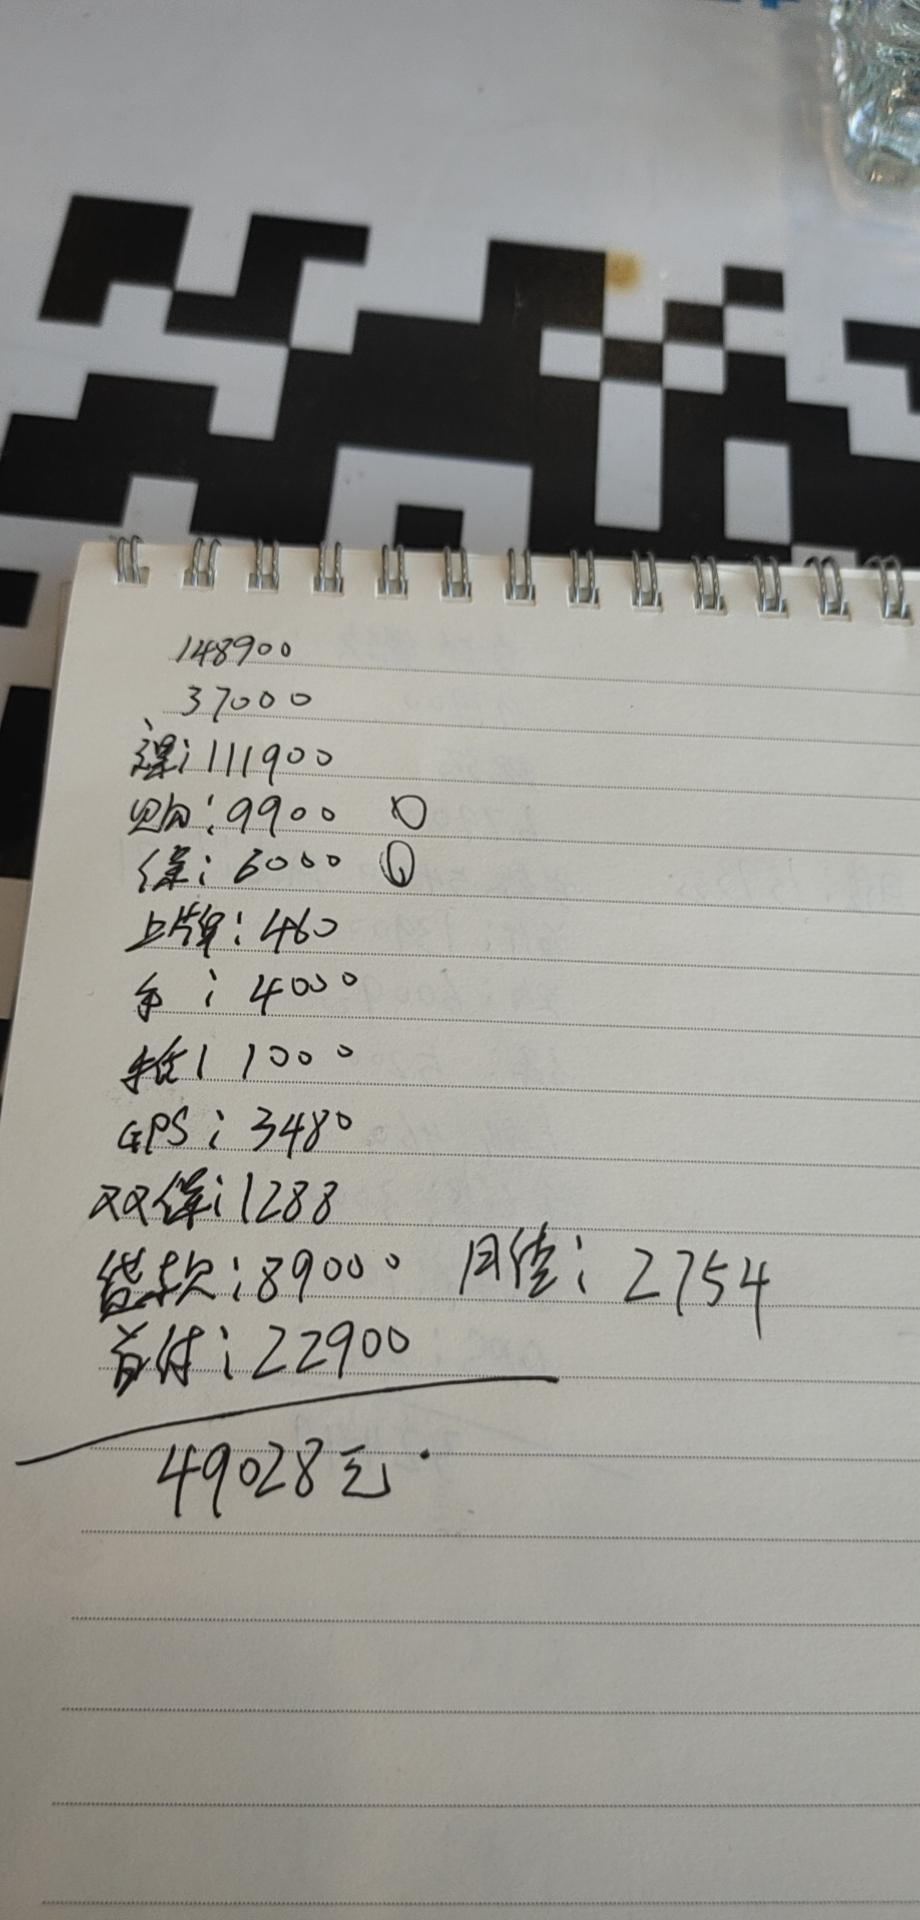 148900
37000
裸:111900
购:9900
保:6000
上牌:460
手:4000
抵:1000
GPS:3480
双保:1288
贷款:89000 月供:2754
首付:22900
49028元.